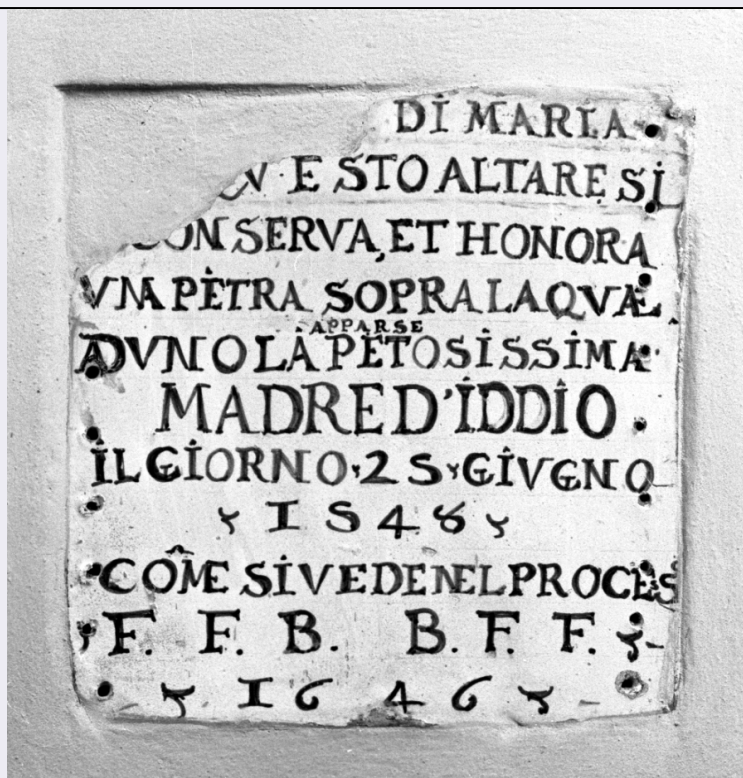 DI MARIA
QV·ESTO ALTARE SI
CONSERVA, ET HONORA
VNA PETRA SOPRA LA QVAL
APPARSE
AD VNO LA PETOSISSIMA
MADRE D'IDDIO
IL GIORNO·25·GIVGNO
1548
COME SI VEDE NEL PROCES
F. F. B. B. F. F.
1646